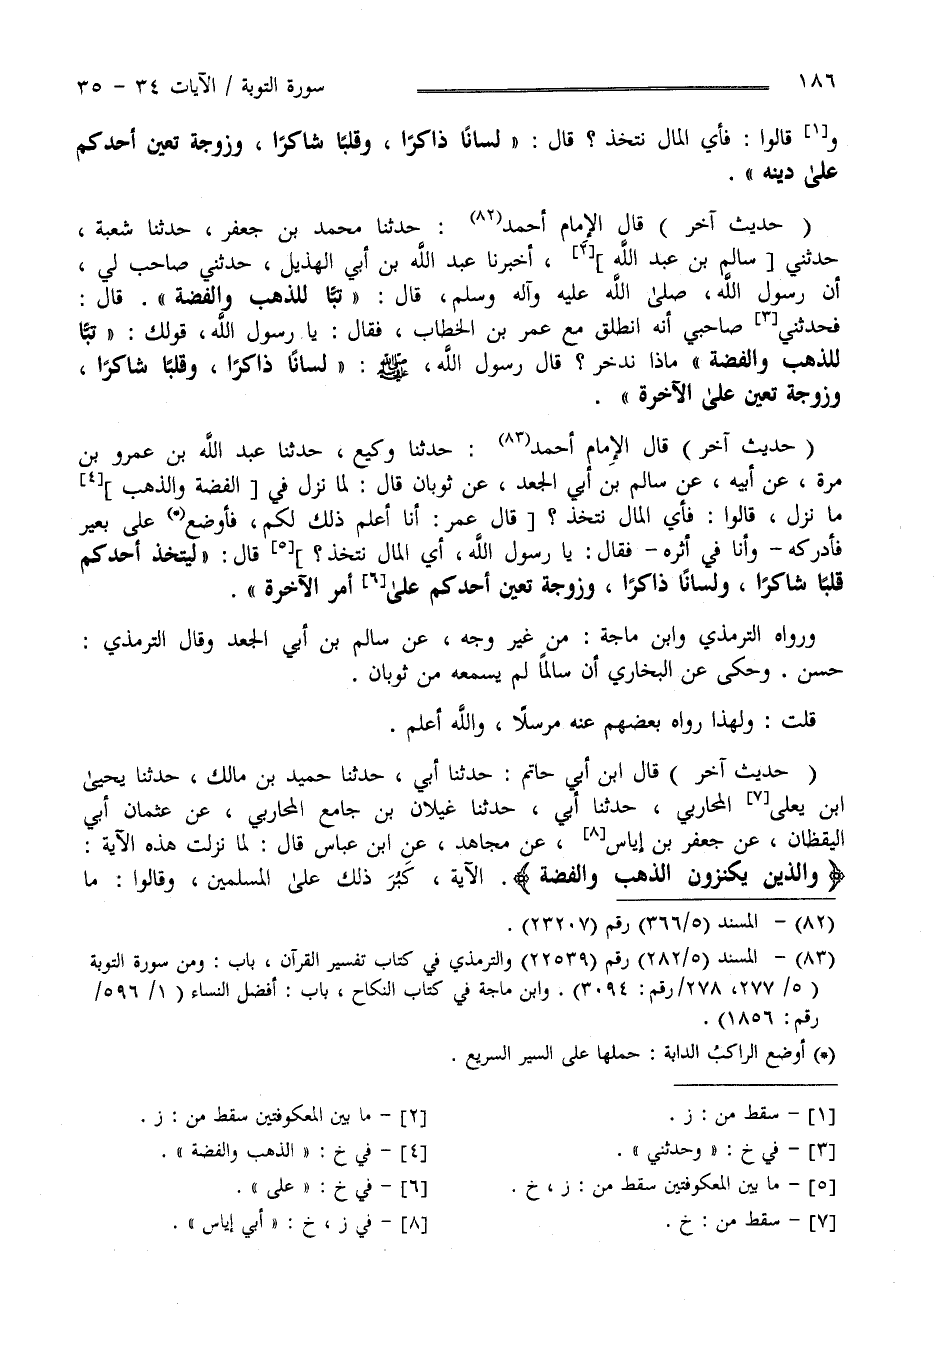 ١٨٦ سورة التوبة / الآيات ٣٤ - ٣٥
و[١] قالوا : فأي المال نتخذ ؟ قال : « لسانًا ذاكرًا ، وقلبًا شاكرًا ، وزوجة تعين أحدكم
على دينه » .
( حديث آخر ) قال الإمام أحمد(٨٢) : حدثنا محمد بن جعفر ، حدثنا شعبة ،
حدثني [ سالم بن عبد اللَّه ][٢] ، أخبرنا عبد اللَّه بن أبي الهذيل ، حدثني صاحب لي ،
أن رسول اللَّه، صلى اللَّه عليه وآله وسلم، قال : « تبًّا للذهب والفضة » . قال :
فحدثني[٣] صاحبي أنه انطلق مع عمر بن الخطاب ، فقال : يا رسول اللَّه، قولك : « تبًّا
للذهب والفضة » ماذا ندخر ؟ قال رسول اللَّه، ﷺ : « لسانًا ذاكرًا ، وقلبًا شاكرًا ،
وزوجة تعين على الآخرة » .
( حديث آخر ) قال الإمام أحمد(٨٣) : حدثنا وكيع ، حدثنا عبد اللَّه بن عمرو بن
مرة ، عن أبيه ، عن سالم بن أبي الجعد ، عن ثوبان قال : لما نزل في [ الفضة والذهب ][٤]
ما نزل ، قالوا : فأي المال نتخذ ؟ [ قال عمر: أنا أعلم ذلك لكم، فأوضع(*) على بعير
فأدركه - وأنا في أثره - فقال: يا رسول اللَّه، أي المال نتخذ؟ ][٥] قال: « ليتخذ أحدكم
قلبًا شاكرًا ، ولسانًا ذاكرًا ، وزوجة تعين أحدكم على[٦] أمر الآخرة » .
ورواه الترمذي وابن ماجة : من غير وجه ، عن سالم بن أبي الجعد وقال الترمذي :
حسن . وحكى عن البخاري أن سالماً لم يسمعه من ثوبان .
قلت : ولهذا رواه بعضهم عنه مرسلًا ، واللَّه أعلم .
( حديث آخر ) قال ابن أبي حاتم : حدثنا أبي ، حدثنا حميد بن مالك ، حدثنا يحيى
ابن يعلى[٧] المحاربي ، حدثنا أبي ، حدثنا غيلان بن جامع المحاربي ، عن عثمان أبي
اليقظان ، عن جعفر بن إياس[٨] ، عن مجاهد ، عن ابن عباس قال : لما نزلت هذه الآية :
﴿ والذين يكنزون الذهب والفضة ﴾. الآية ، كَبُرَ ذلك على المسلمين ، وقالوا : ما
(٨٢) - المسند (٣٦٦/٥) رقم (٢٣٢٠٧) .
(٨٣) - المسند (٢٨٢/٥) رقم (٢٢٥٣٩) والترمذي في كتاب تفسير القرآن ، باب : ومن سورة التوبة
( ٥/ ٢٧٧، ٢٧٨/رقم: ٣٠٩٤) . وابن ماجة في كتاب النكاح ، باب : أفضل النساء ( ١/ ٥٩٦/
رقم: ١٨٥٦) .
(*) أوضع الراكبُ الدابة : حملها على السير السريع .
[١] - سقط من : ز . [٢] - ما بين المعكوفتين سقط من : ز .
[٣] - في خ : « وحدثني » . [٤] - في خ : « الذهب والفضة » .
[٥] - ما بين المعكوفتين سقط من : ز ، خ . [٦] - في خ : « على » .
[٧] - سقط من : خ . [٨] - في ز ، خ : « أبي إياس » .